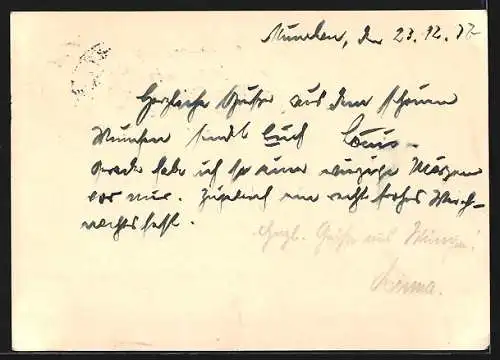 München, den 23.12.37
Herzliche Grüße aus dem schönen
München sendet Euch Louis.
Gerade habe ich so eine winzige Märzen
vor mir. Zugleich ein recht frohes Weih-
nachtsfest.
Herzl. Grüße aus München!